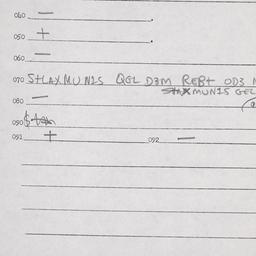 040 —
050 +
060 —
070 S+LAXMUN1S QGL D3M REB+ OD3
S+AXMUN1S GEL
080 —
090
091 + 092 —